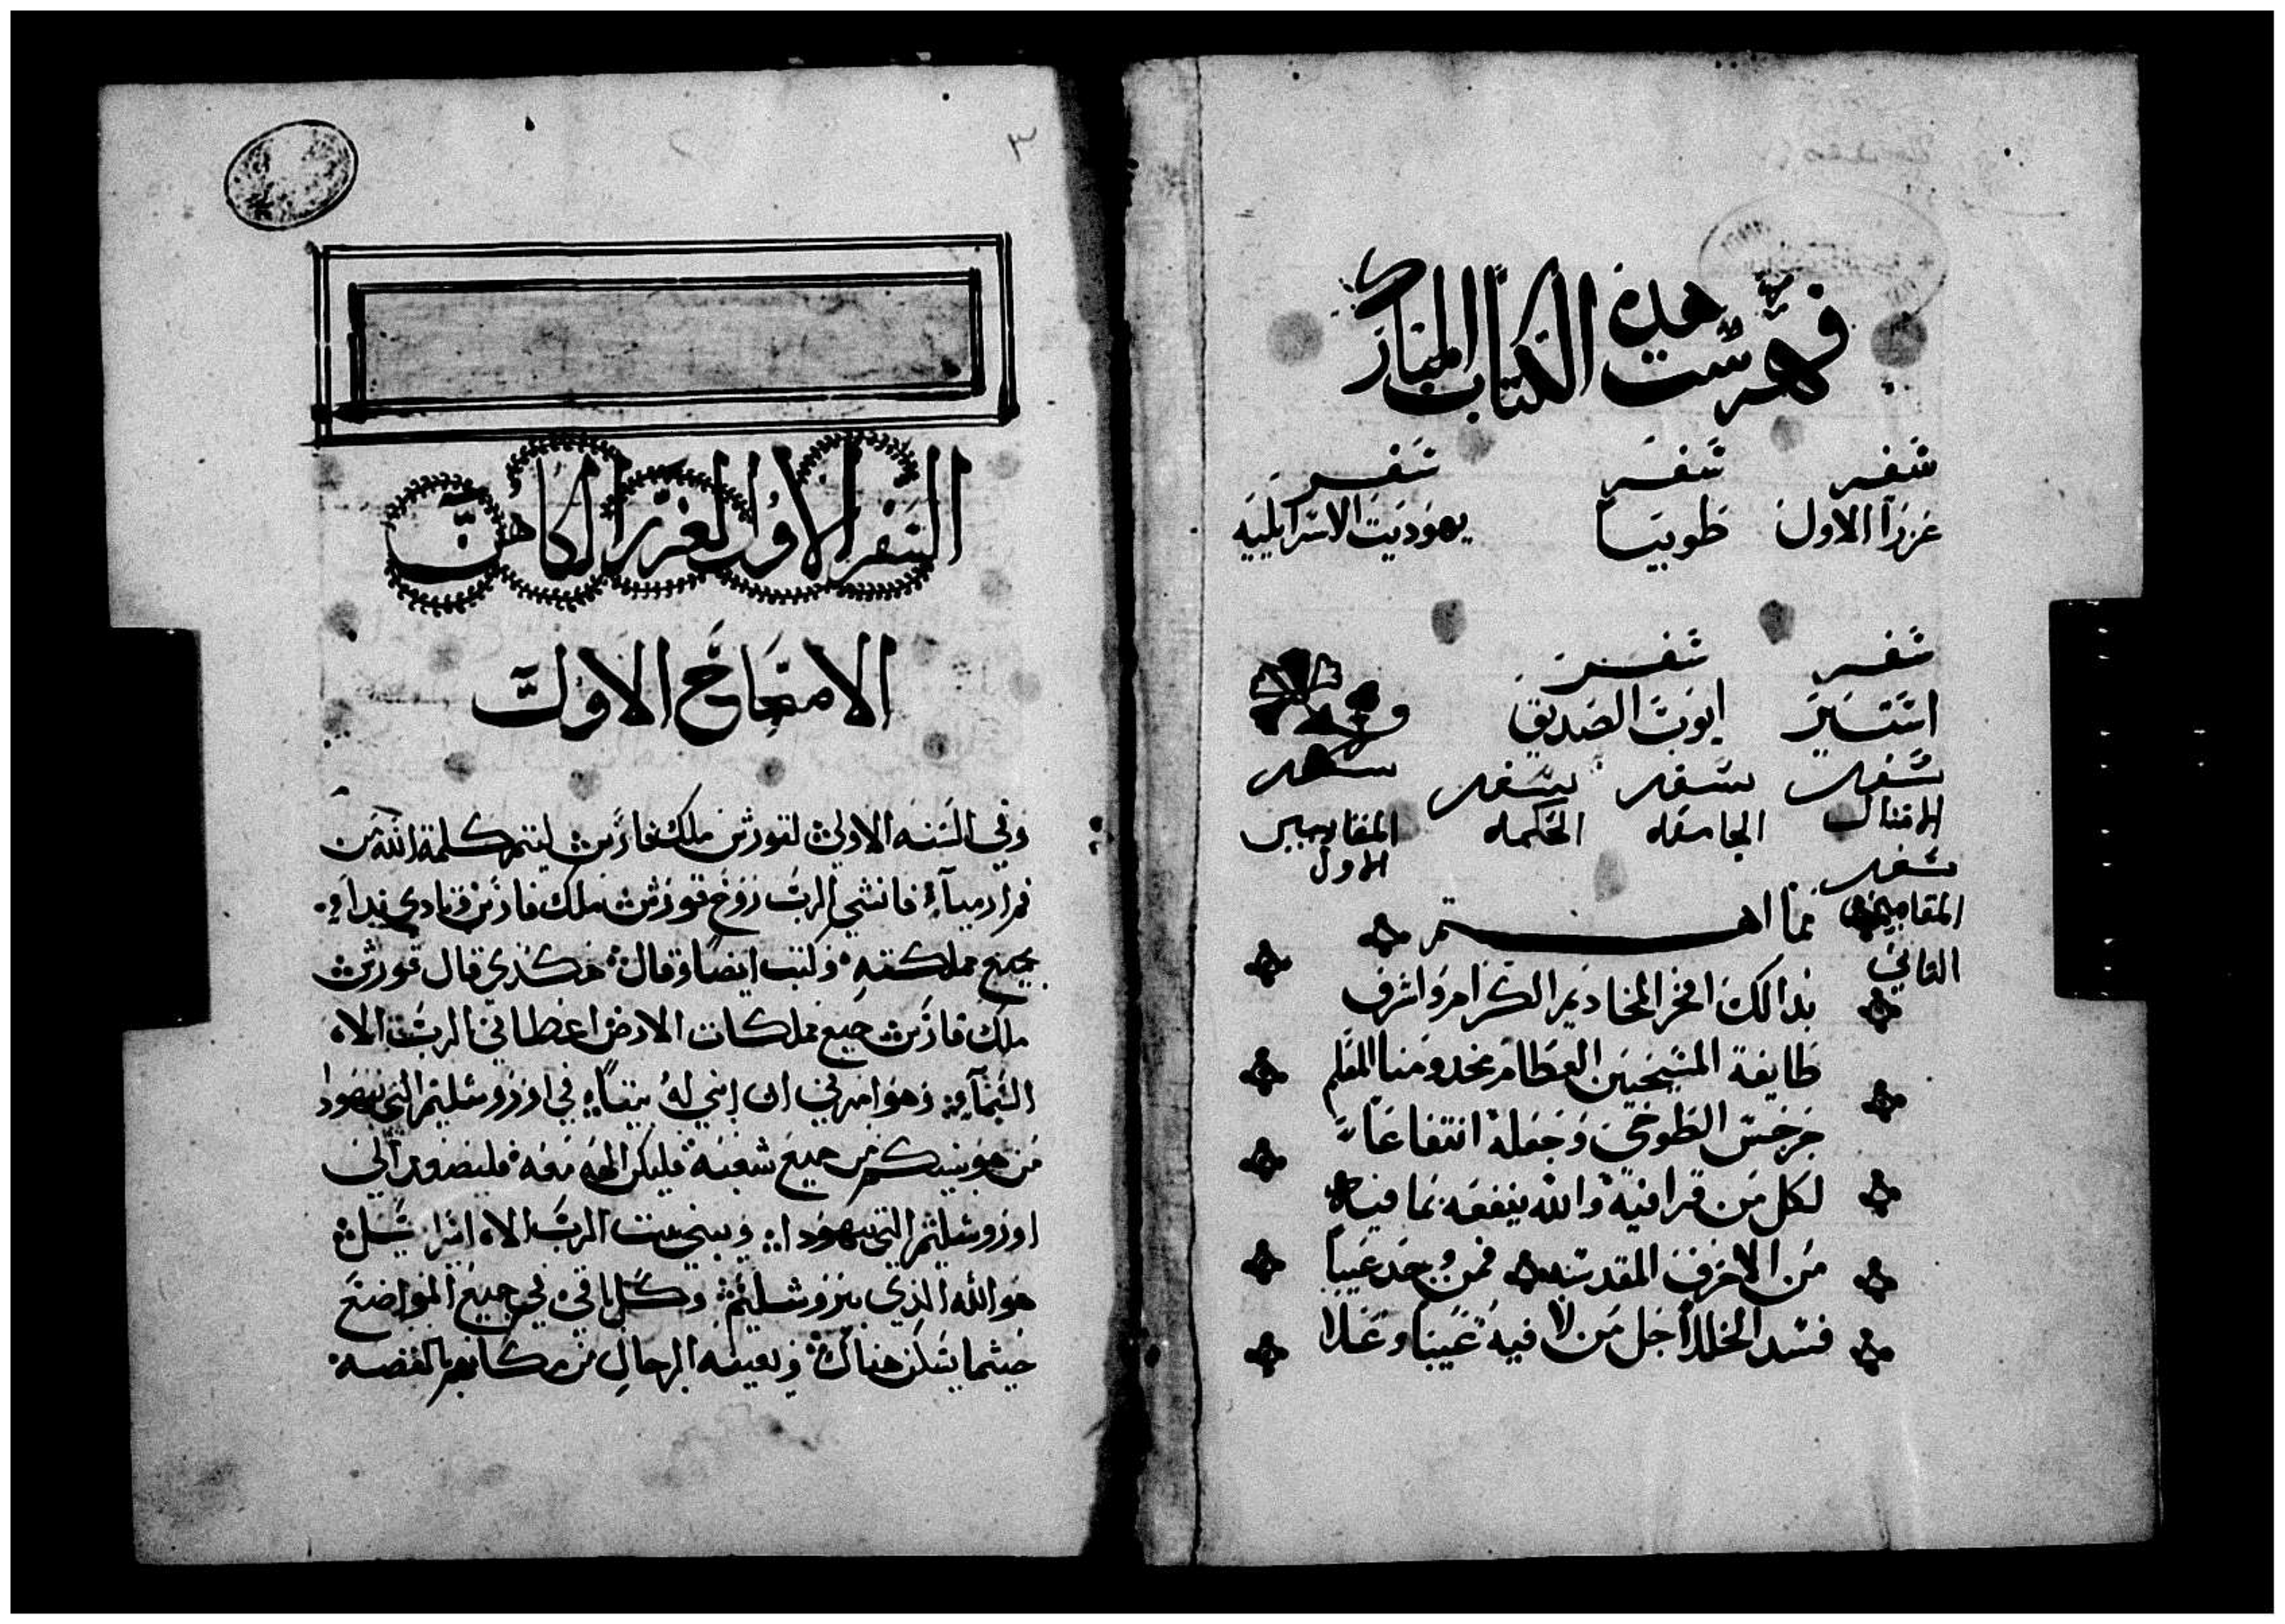 فهرست هذه الكتاب المبارك
سفر سفر سفر
عزرا الاول طوبيا يهوديت الاسرايليه
سفر سفر
استير ايوب الصديق
سفر سفر سفر سفر
الامثال الجامعه الحكمه المقابيين
الاول
سفر
المقابيين
الثاني
مما اهتم
بدالك افخر المخاديم الكرام واشرف
طايفة المسيحيين العظام مخدومنا المعلم
جرجس الطوخي وجعله انتفاعا
لكل من قرا فيه والله ينفعه بما فيه
من الاحرف المقدسه فمن وجد عيبا
فسد الخللا جل من لا فيه عيبا وعلا
٣
السفر الاول لعزرا الكاهن
الاصحاح الاول
وفي السنه الاولي لقورش ملك فارس ليتم كلمة الله من
فم ارمياء فانشي الرب روح قورش ملك فارس ونادي ندا في
جميع مملكته وكتب ايضا وقال هكذي قال قورش
ملك فارس جميع مملكات الارض اعطاني الرب الاه
السماء وهو امرني ان ابني له بيتا في اوروشليم التي بيهودا
من هو بينكم من جميع شعبه فليكن الهه معه فليصعد الي
اوروشليم التي بيهودا ويبني بيت الرب الاه اسراييل
هو الله الذي بيروشليم وكل باقي في جميع المواضع
حيثما يسكن هناك ويعينه الرجال من مكانهم بالفضه